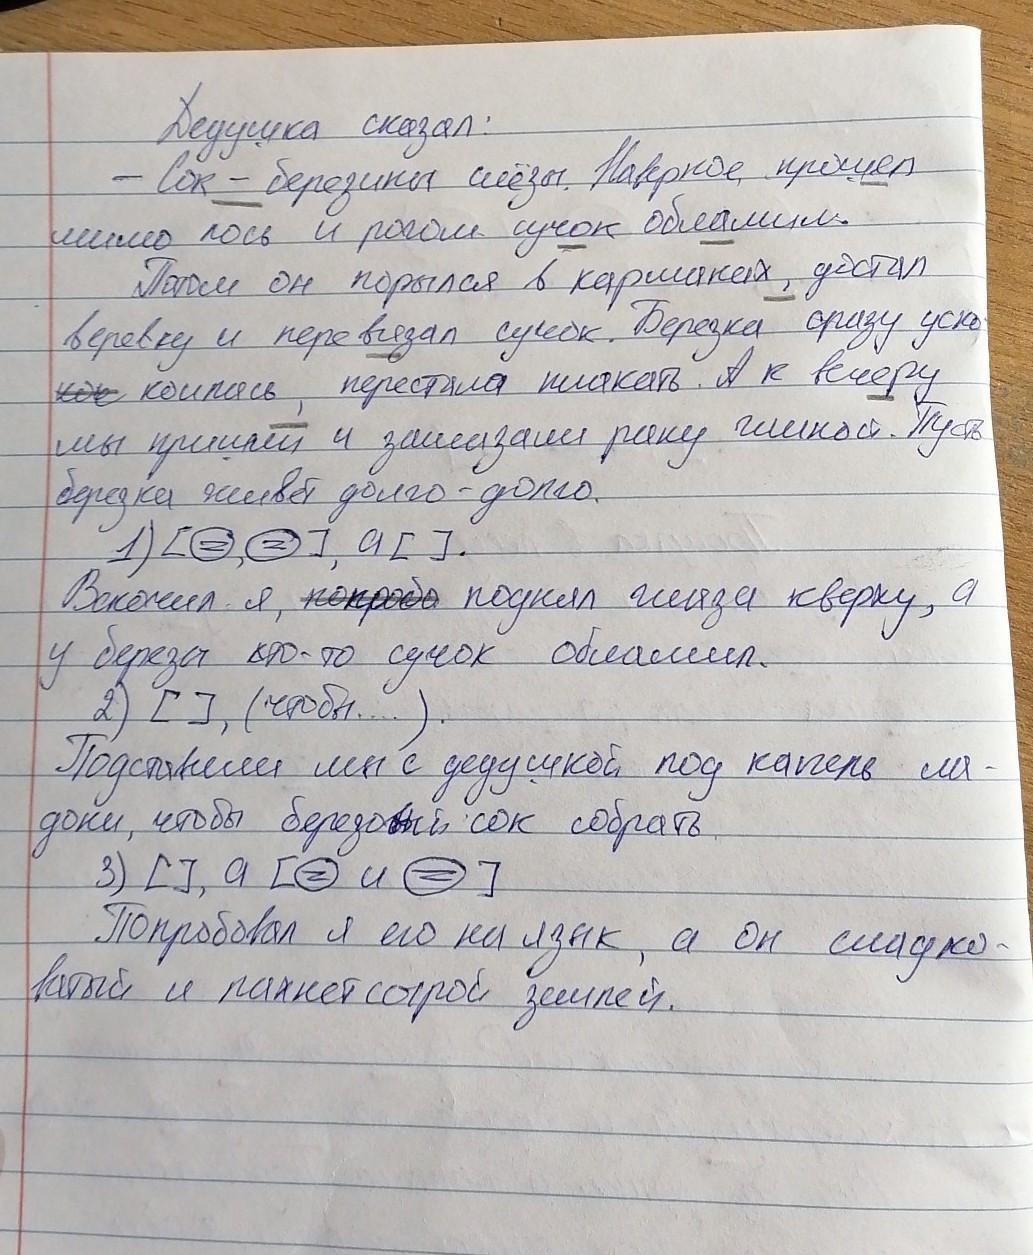 Дедушка сказал:
– Сок – березины слёзы. Наверное, прошел
мимо лось и рогом сучок обломил.
Потом он порылся в карманах, достал
веревку и перевязал сучок. Березка сразу успо-
коилась, перестала плакать. А к вечеру
мы пришли и замазали рану глиной. Пусть
березка живёт долго-долго.
1) [=, =], а [ ].
Вскочил я, поднял глаза кверху, а
у березы кто-то сучок обломил.
2) [ ], (чтобы....).
Подставили мы с дедушкой под капель ла-
дони, чтобы березовый сок собрать
3) [ ], а [= и =]
Попробовал я его на язык, а он сладко-
ватый и пахнет сырой землей.